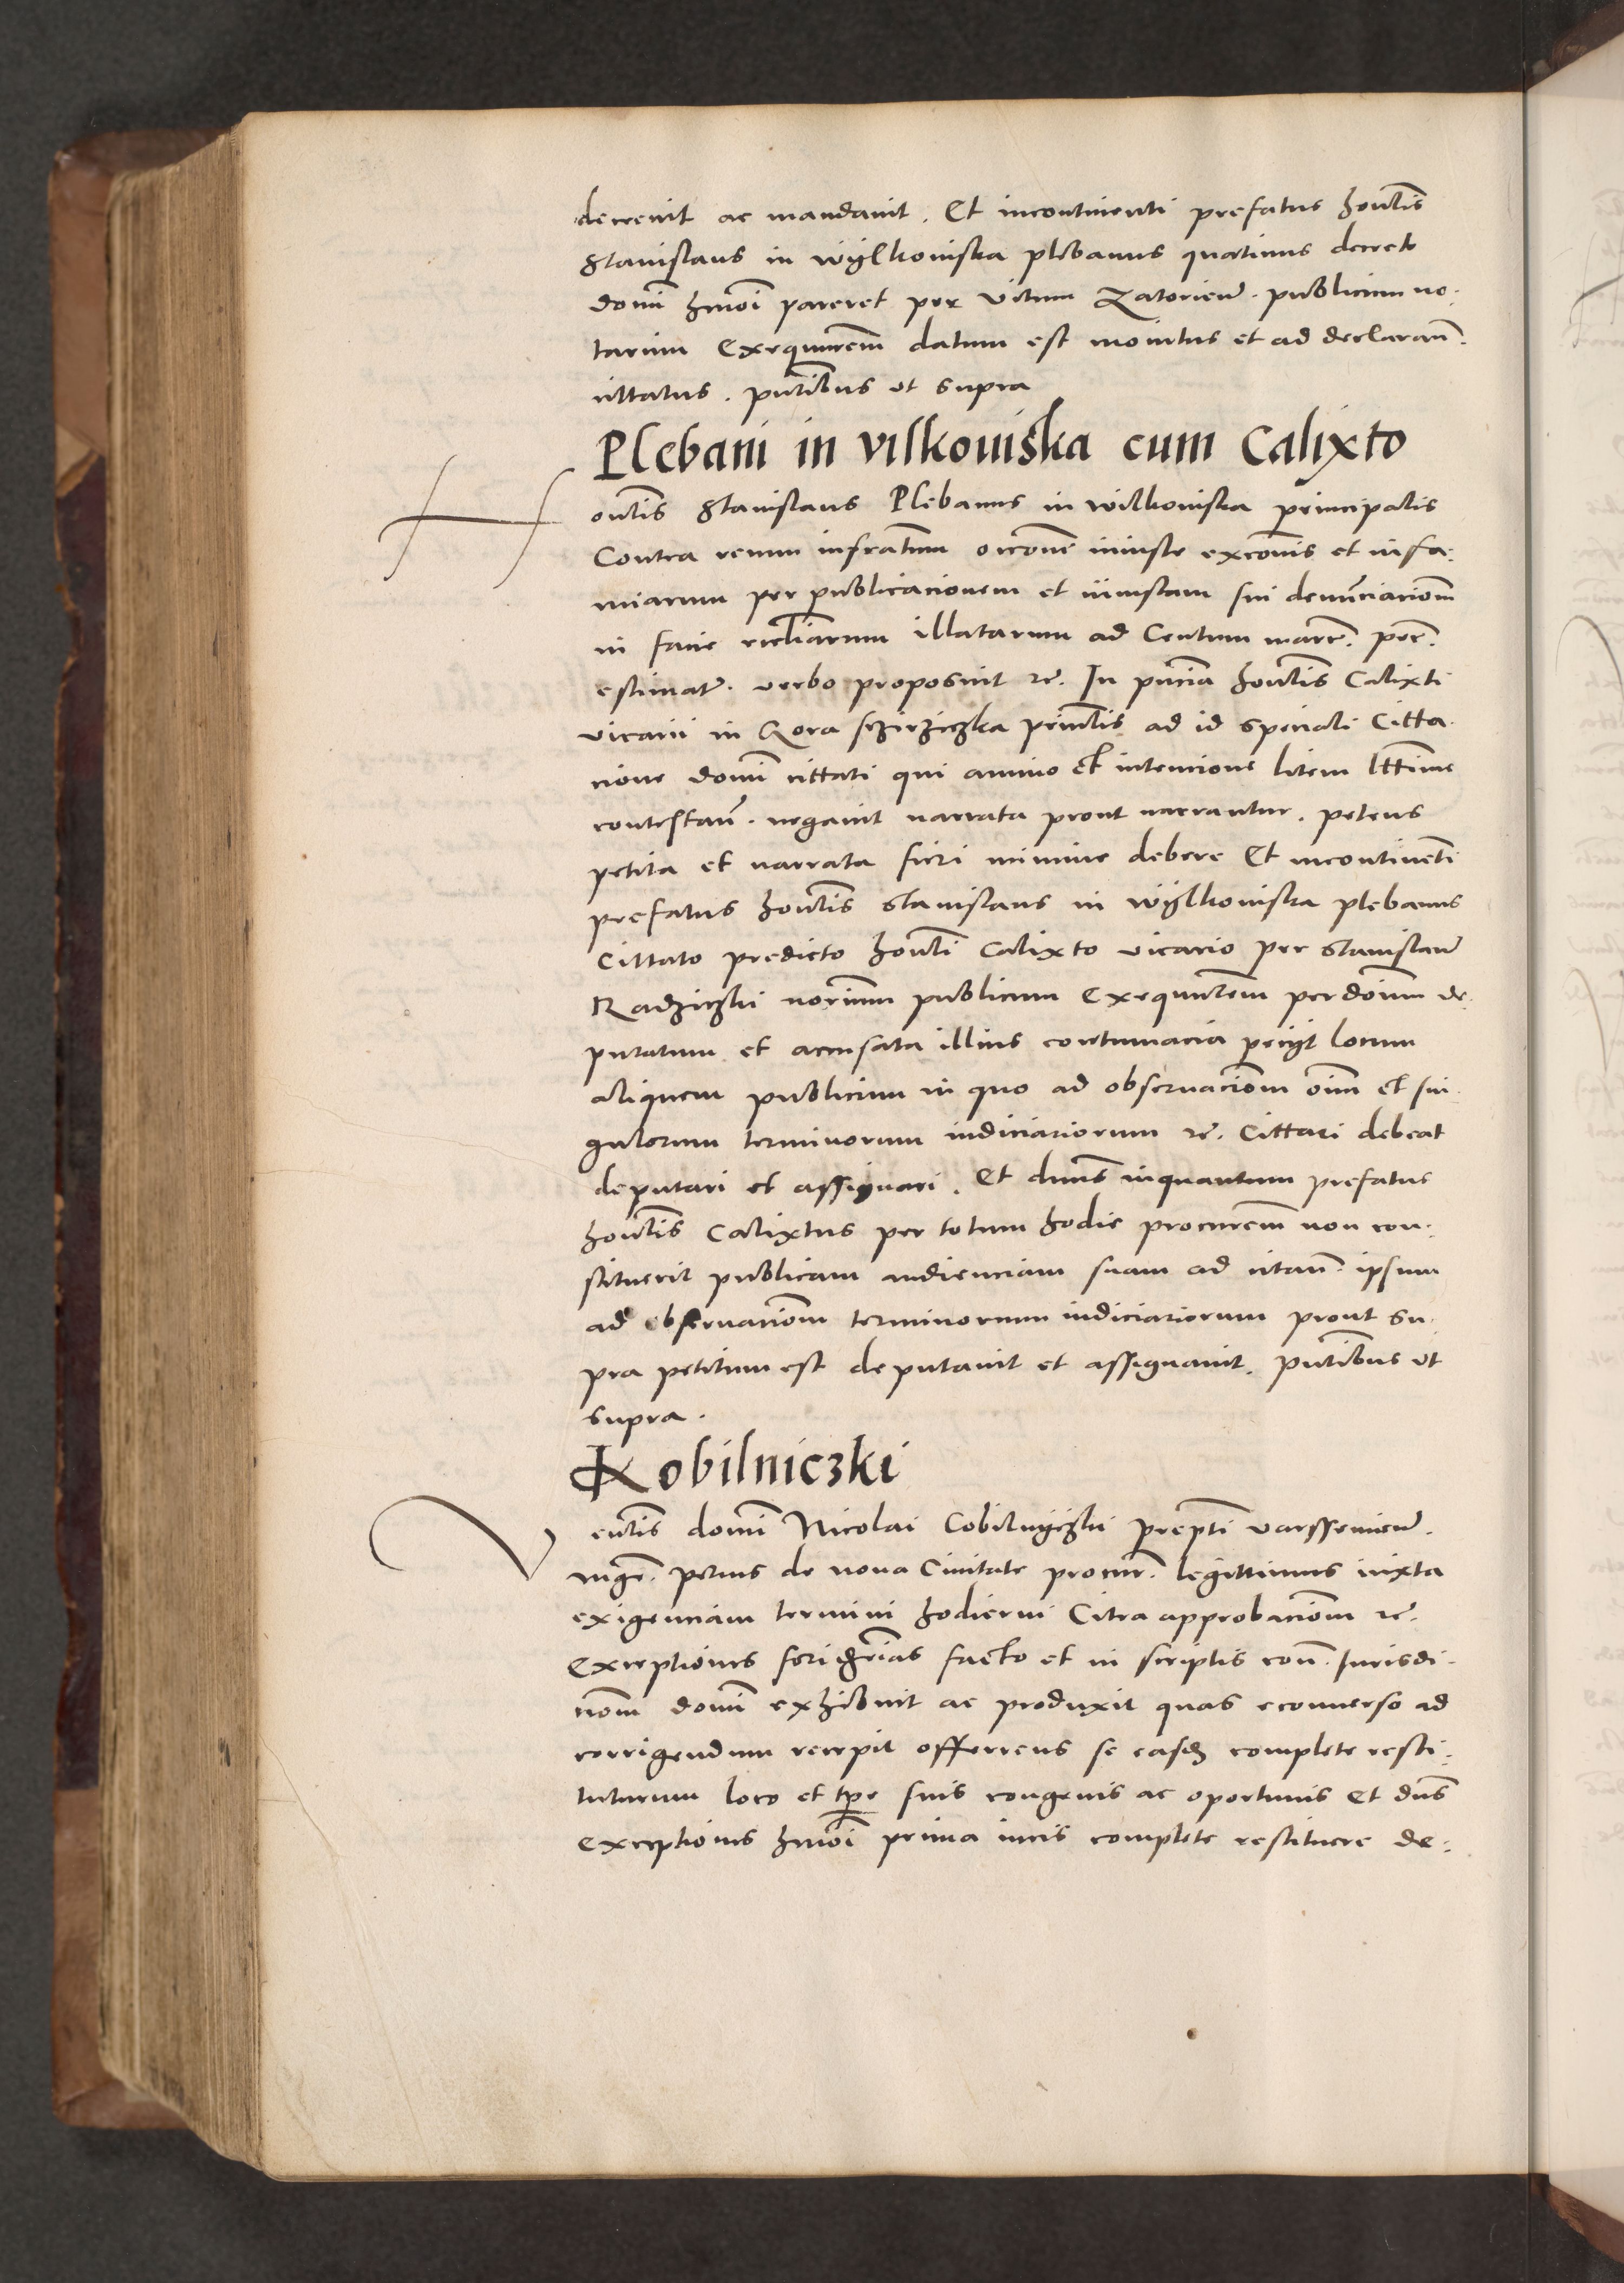 decrevit ac mandavit. Et incontinenti prefatus hontis
Stanislaus in Wÿlkoviska plebanus quatinus decreto
domi hmoi pareret per vitum Zatorien. publicum no-
tarium Exequutrem datum est monitus et ad declarand.
cittatus. putibus ut supra
Plebani in vilkouiska cum Calixto
H
ontis Stanislaus Plebanus in wilkoviska principalis
Contra reum infratum occone iniuste excois et infa-
miarum per publicacionem et iniustam sui denunciaciom
in facie ecclarum illatarum ad Centum marc. pec.
estimat. verbo proposuit etc. In pncia hontis Calixti
vicarii in Gora principlis ad id speciali Citta-
cione domi cittati qui animo et intencione litem lttime
contestan. negavit narrata prout narrantur. petens
petita et narrata fieri minime debere Et incontinenti
prefatus hontis Stanislaus in Wÿlkoviska plebanus
Cittato predicto honti Calixto vicario per Stanislaum
Radziczki notrium publicum Exequutem per doium de-
putatum et accusata illius contumacia peciÿt locum
aliquem publicum in quo ad observaciom oim et sin-
gulorum terminorum iudiciariorum etc. Cittari debeat
deputari et assignari. Et dnus inquantum prefatus
hontis Calixtus per totum hodie procurem non con-
stituerit publicam audienciam suam ad citan. ipsum
ad observaciom terminorum iudiciariorum prout su-
pra petitum est deputavit et assignavit. putibus ut
supra.
Kobilniczki
V
entis domi Nicolai Cobilnÿczki prepti varsseviens.
nige. petrus de nova Civitate procur. legittimus iuxta
exigenciam termini hodierni Citra approbaciom etc.
Exceptiones facto et in scriptis con. Iurisdi-
ciom domi exhibuit ac produxit quas econverso ad
corrigendum recepit offerens se easdem complete resti-
tuturum loco et tpe suis congruis ac oportunis Et dns
exceptiones hmoi prima iuris complete restituere de-